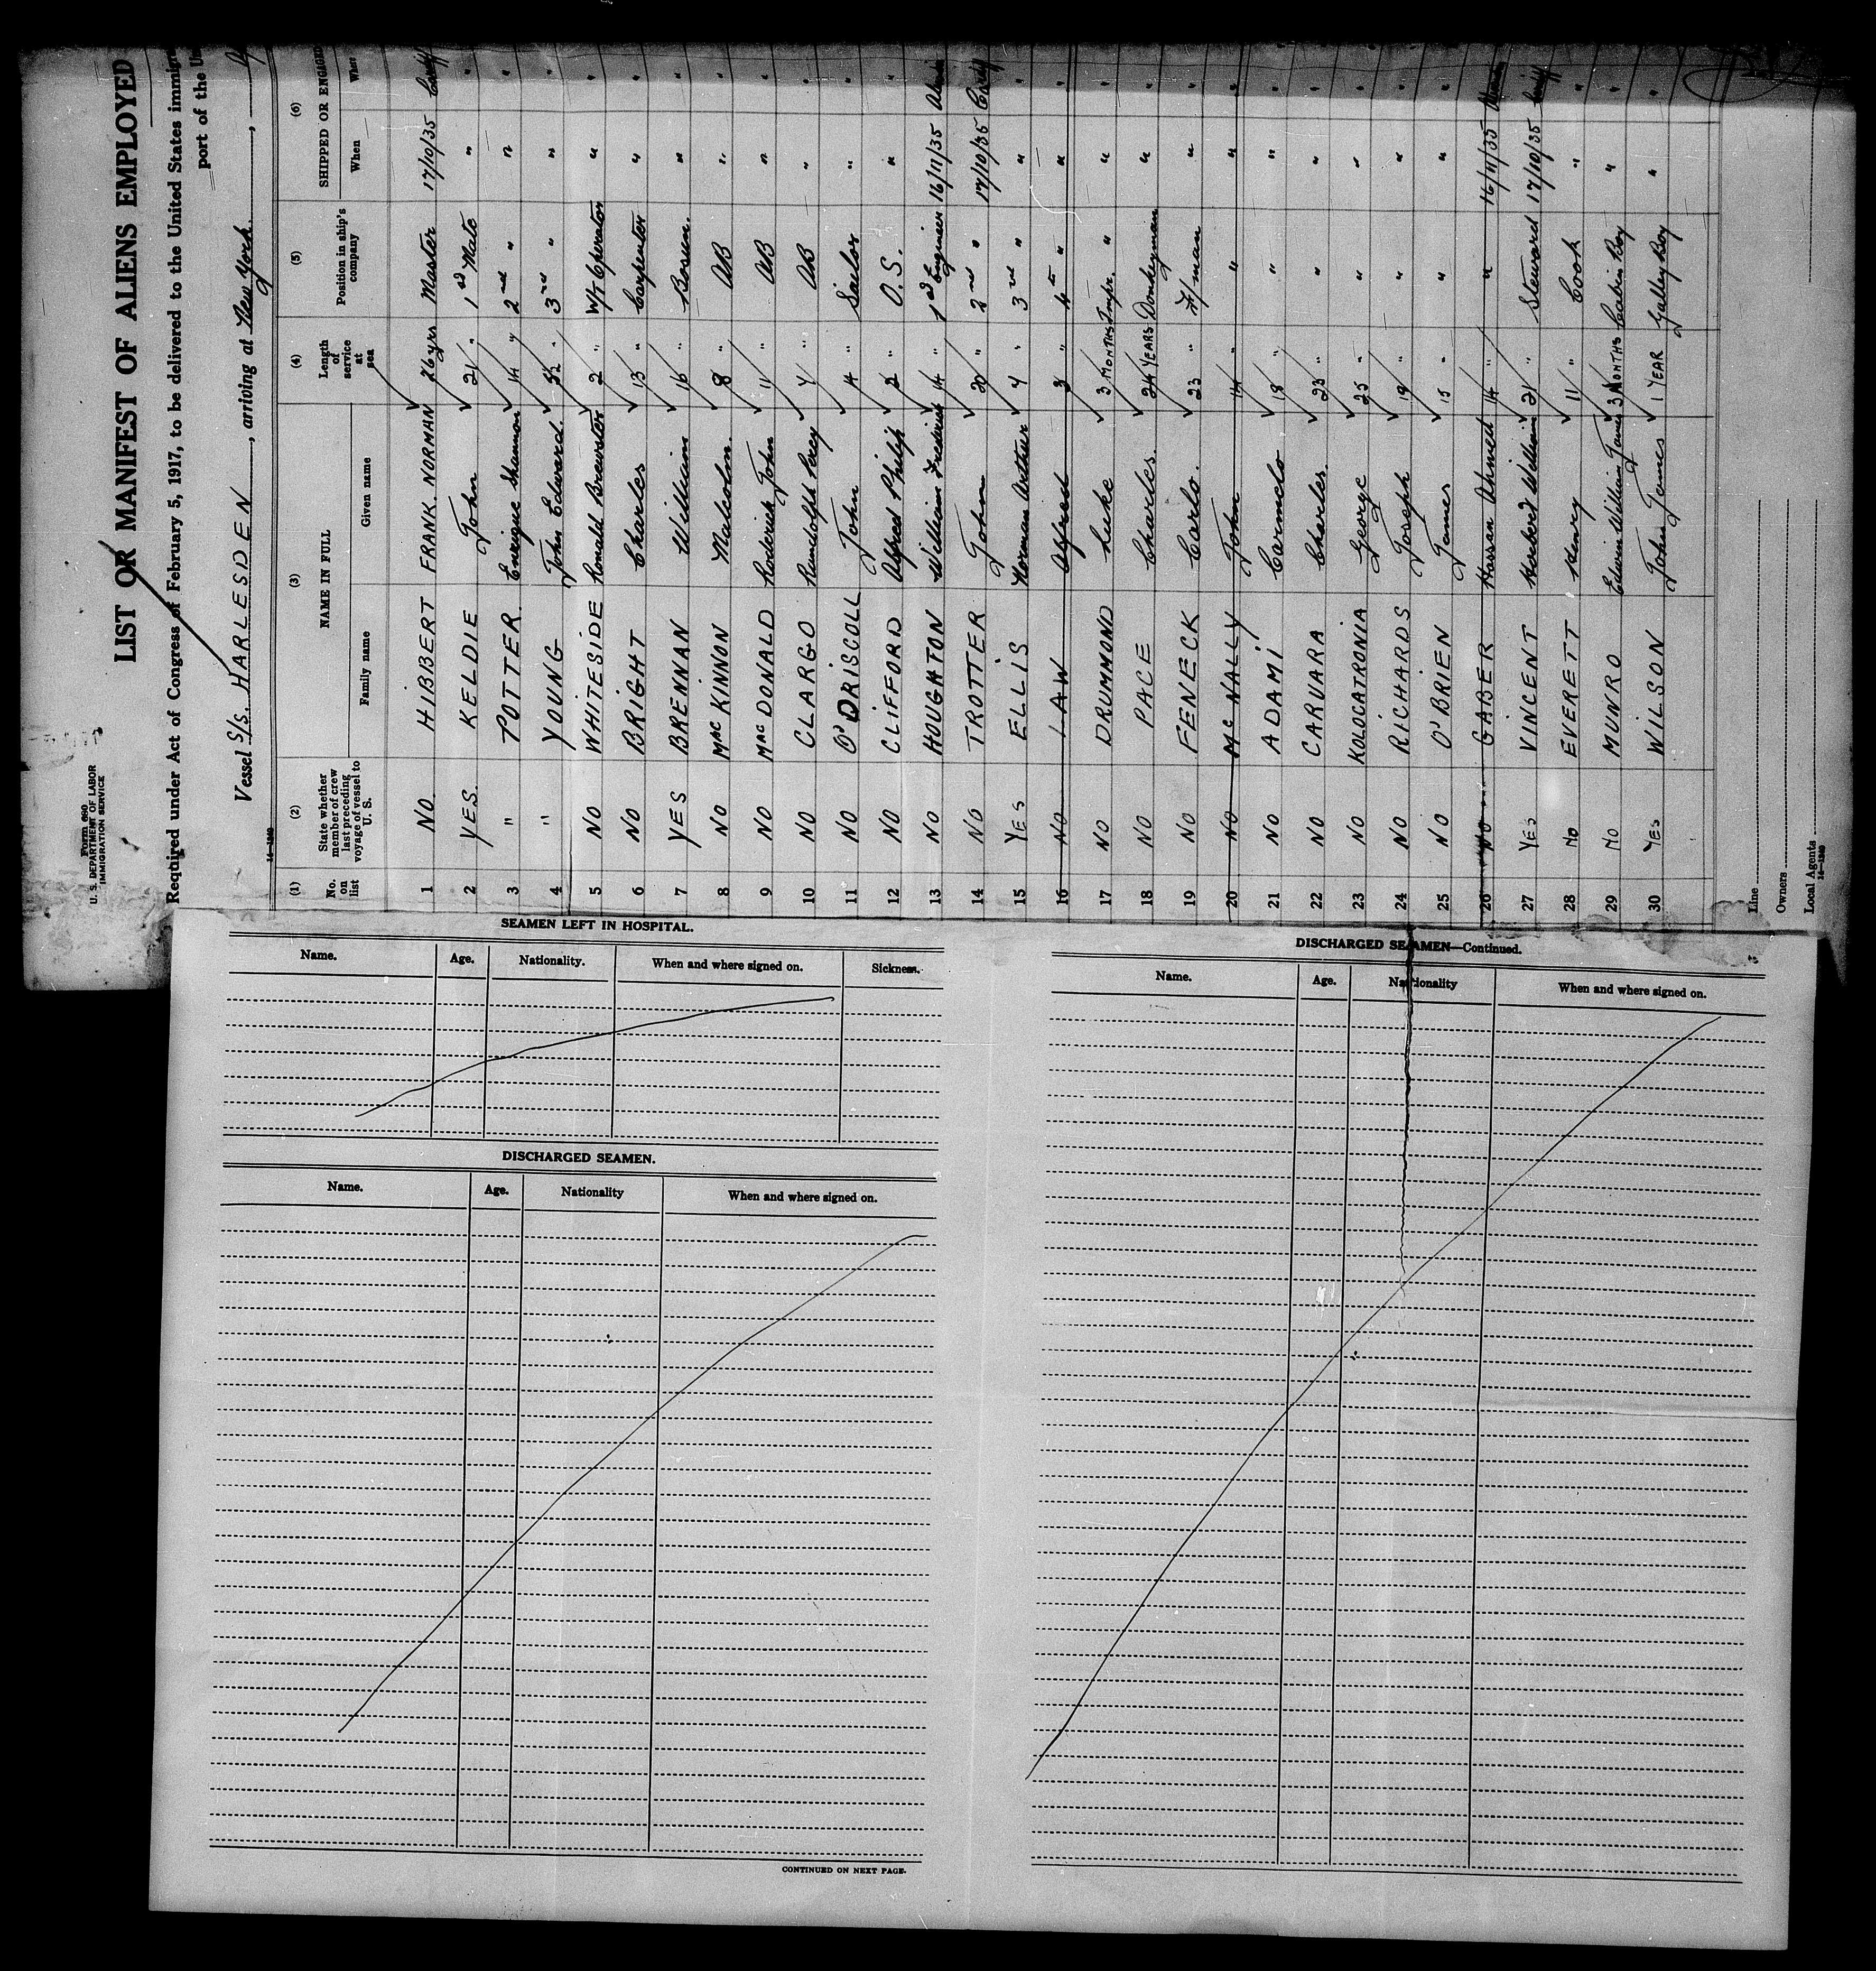 Form 690
U. S. DEPARTMENT OF LABOR
IMMIGRATION SERVICE
LIST OR MANIFEST OF ALIENS EMPLOYED
Required under Act of Congress of February 5, 1917, to be delivered to the United States immigr
port of the
Vessel S/s. HARLESDEN, arriving at New York.,
(1) (2) (3) (4) (5) (6)
No. on list State whether member of crew last preceding voyage of vessel to U. S. NAME IN FULL Length of service at sea Position in ship's company SHIPPED OR ENGAGED
Family name Given name When Where
1 NO. HIBBERT FRANK. NORMAN 26 yrs Master 17/10/35 Cardiff
2 YES. KELDIE John 21 " 1st Mate " "
3 " POTTER. Enrique Shannon 14 " 2nd " " "
4 " YOUNG John Edward. " 3rd " " "
5 NO WHITESIDE Ronald Brewster 2 " W/T Operator " "
6 NO BRIGHT Charles 13 " Carpenter " "
7 YES BRENNAN William 16 " Bosun. " "
8 NO MacKINNON Malcolm. 8 " AB " "
9 NO MacDONALD Roderick John 11 " AB " "
10 NO CLARGO Randolph Percy " AB " "
11 NO O'DRISCOLL John 14 " Sailor " "
12 NO CLIFFORD Alfred Philip 2 " O.S. " "
13 NO HOUGHTON William Frederick 14 " 1st Engineer 16/11/35
14 NO TROTTER John 20 " 2nd " 17/10/35 Cardiff
15 YES ELLIS Norman Arthur " 3rd " " "
16 NO LAW Alfred 3 " 4th " " "
17 NO DRUMMOND Luke 3 MONTHS " " "
18 NO PACE Charles. 24 YEARS Donkeyman " "
19 NO FENECK Carlo. 23 " F/man " "
20 NO McNALLY John 14 " " " "
21 NO ADAMI Carmelo 18 " " " "
22 NO CARUARA Charles. 23 " " " "
23 NO KOLOCATRONIA George 25 " " " "
24 NO RICHARDS Joseph 19 " " " "
25 NO O'BRIEN James 15 " " " "
26 NO GABER Hassan Ahmed 14 " " 16/11/35
27 YES VINCENT Herbert William 21 " Steward 17/10/35 Cardiff
28 NO EVERETT Henry 11 " Cook " "
29 NO MUNRO Edwin William James 3 MONTHS Cabin Boy " "
30 YES WILSON John James 1 YEAR Galley Boy " "
16—1240
Line
Owners
Local Agents
16—1240
SEAMEN LEFT IN HOSPITAL.
Name. Age. Nationality. When and where signed on. Sickness.
DISCHARGED SEAMEN.
Name. Age. Nationality When and where signed on.
CONTINUED ON NEXT PAGE.
DISCHARGED SEAMEN—Continued.
Name. Age. Nationality When and where signed on.